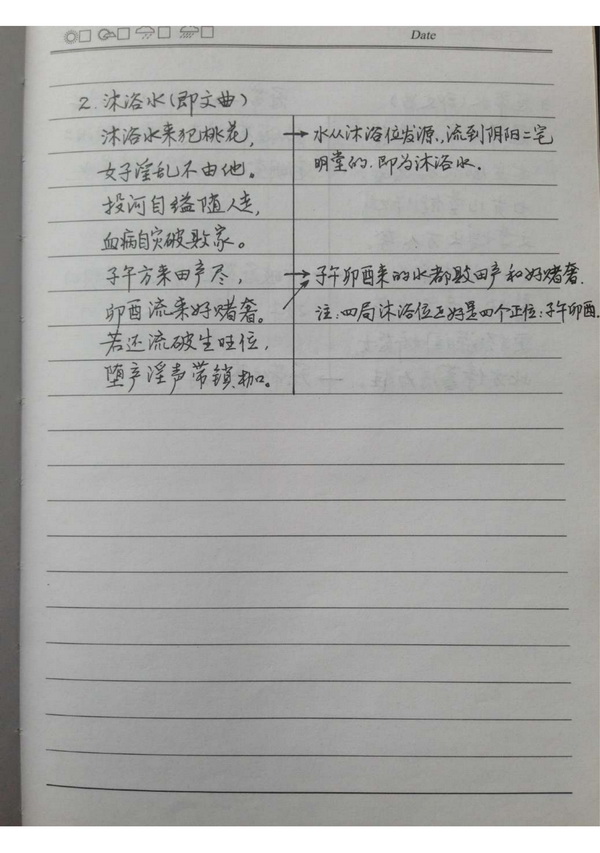 Date
2.沐浴水(即文曲)
沐浴水来犯桃花, → 水从沐浴位发源,流到阴阳二宅
女子淫乱不由他。 明堂的.即为沐浴水.
投河自缢随人走,
血病自突破败家。
子午方来田产尽, → 子午卯酉来的水都败田产和好赌奢.
卯酉流来好赌奢。 注:四局沐浴位正好是四个正位:子午卯酉.
若还流破生旺位,
堕产淫声带锁枷。